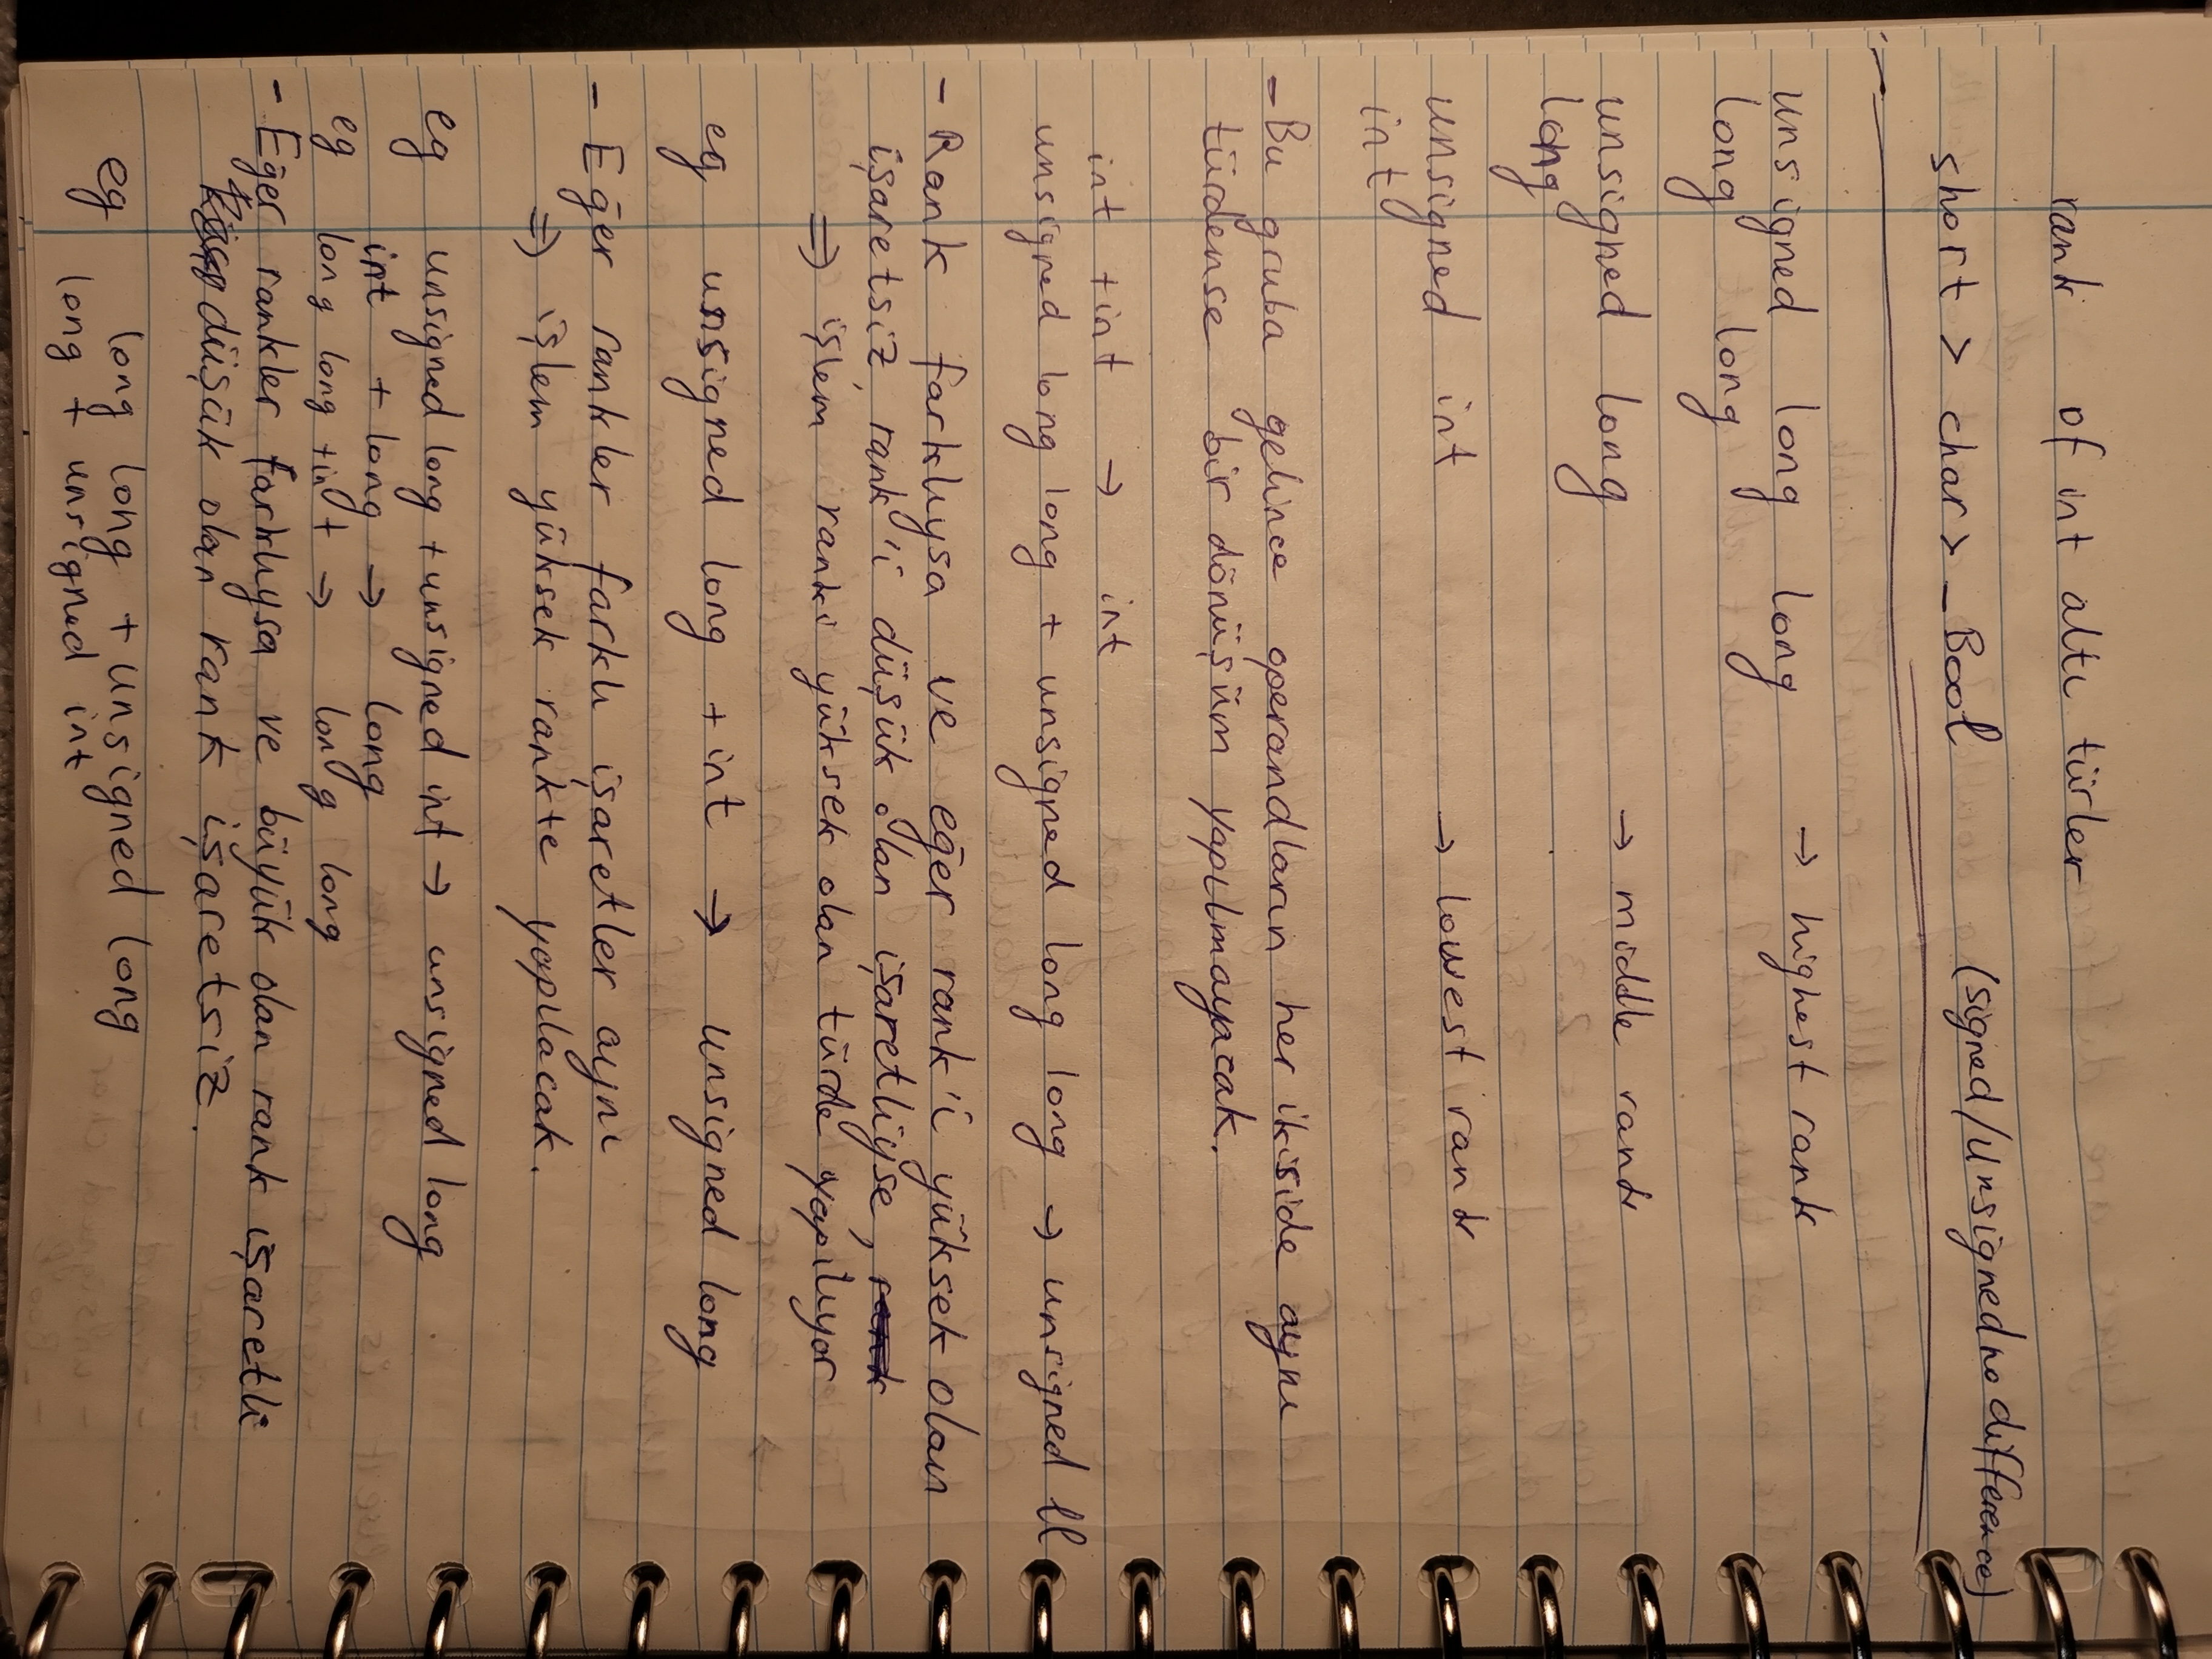 rank of int altı türler
short > char > _Bool (signed/unsigned no difference)
unsigned long long → highest rank
long long
unsigned long → middle rank
long
unsigned int → lowest rank
int
- Bu gruba gelince operandların her ikiside aynı
türdense bir dönüşüm yapılmayacak.
int + int → int
unsigned long long + unsigned long long → unsigned ll
- Rank farklıysa ve eğer rank'i yüksek olan
işaretsiz, rank'i düşük olan işaretliyse, rank
⇒ işlem rankı yüksek olan türde yapılıyor
eg unsigned long + int → unsigned long
- Eğer rankler farklı işaretler aynı
⇒ işlem yüksek rankte yapılacak.
eg unsigned long + unsigned int → unsigned long
int + long → long
eg long long + int → long long
- Eğer rankler farklıysa ve büyük olan rank işaretli
düşük olan rank işaretsiz.
eg long long + unsigned long
long + unsigned int